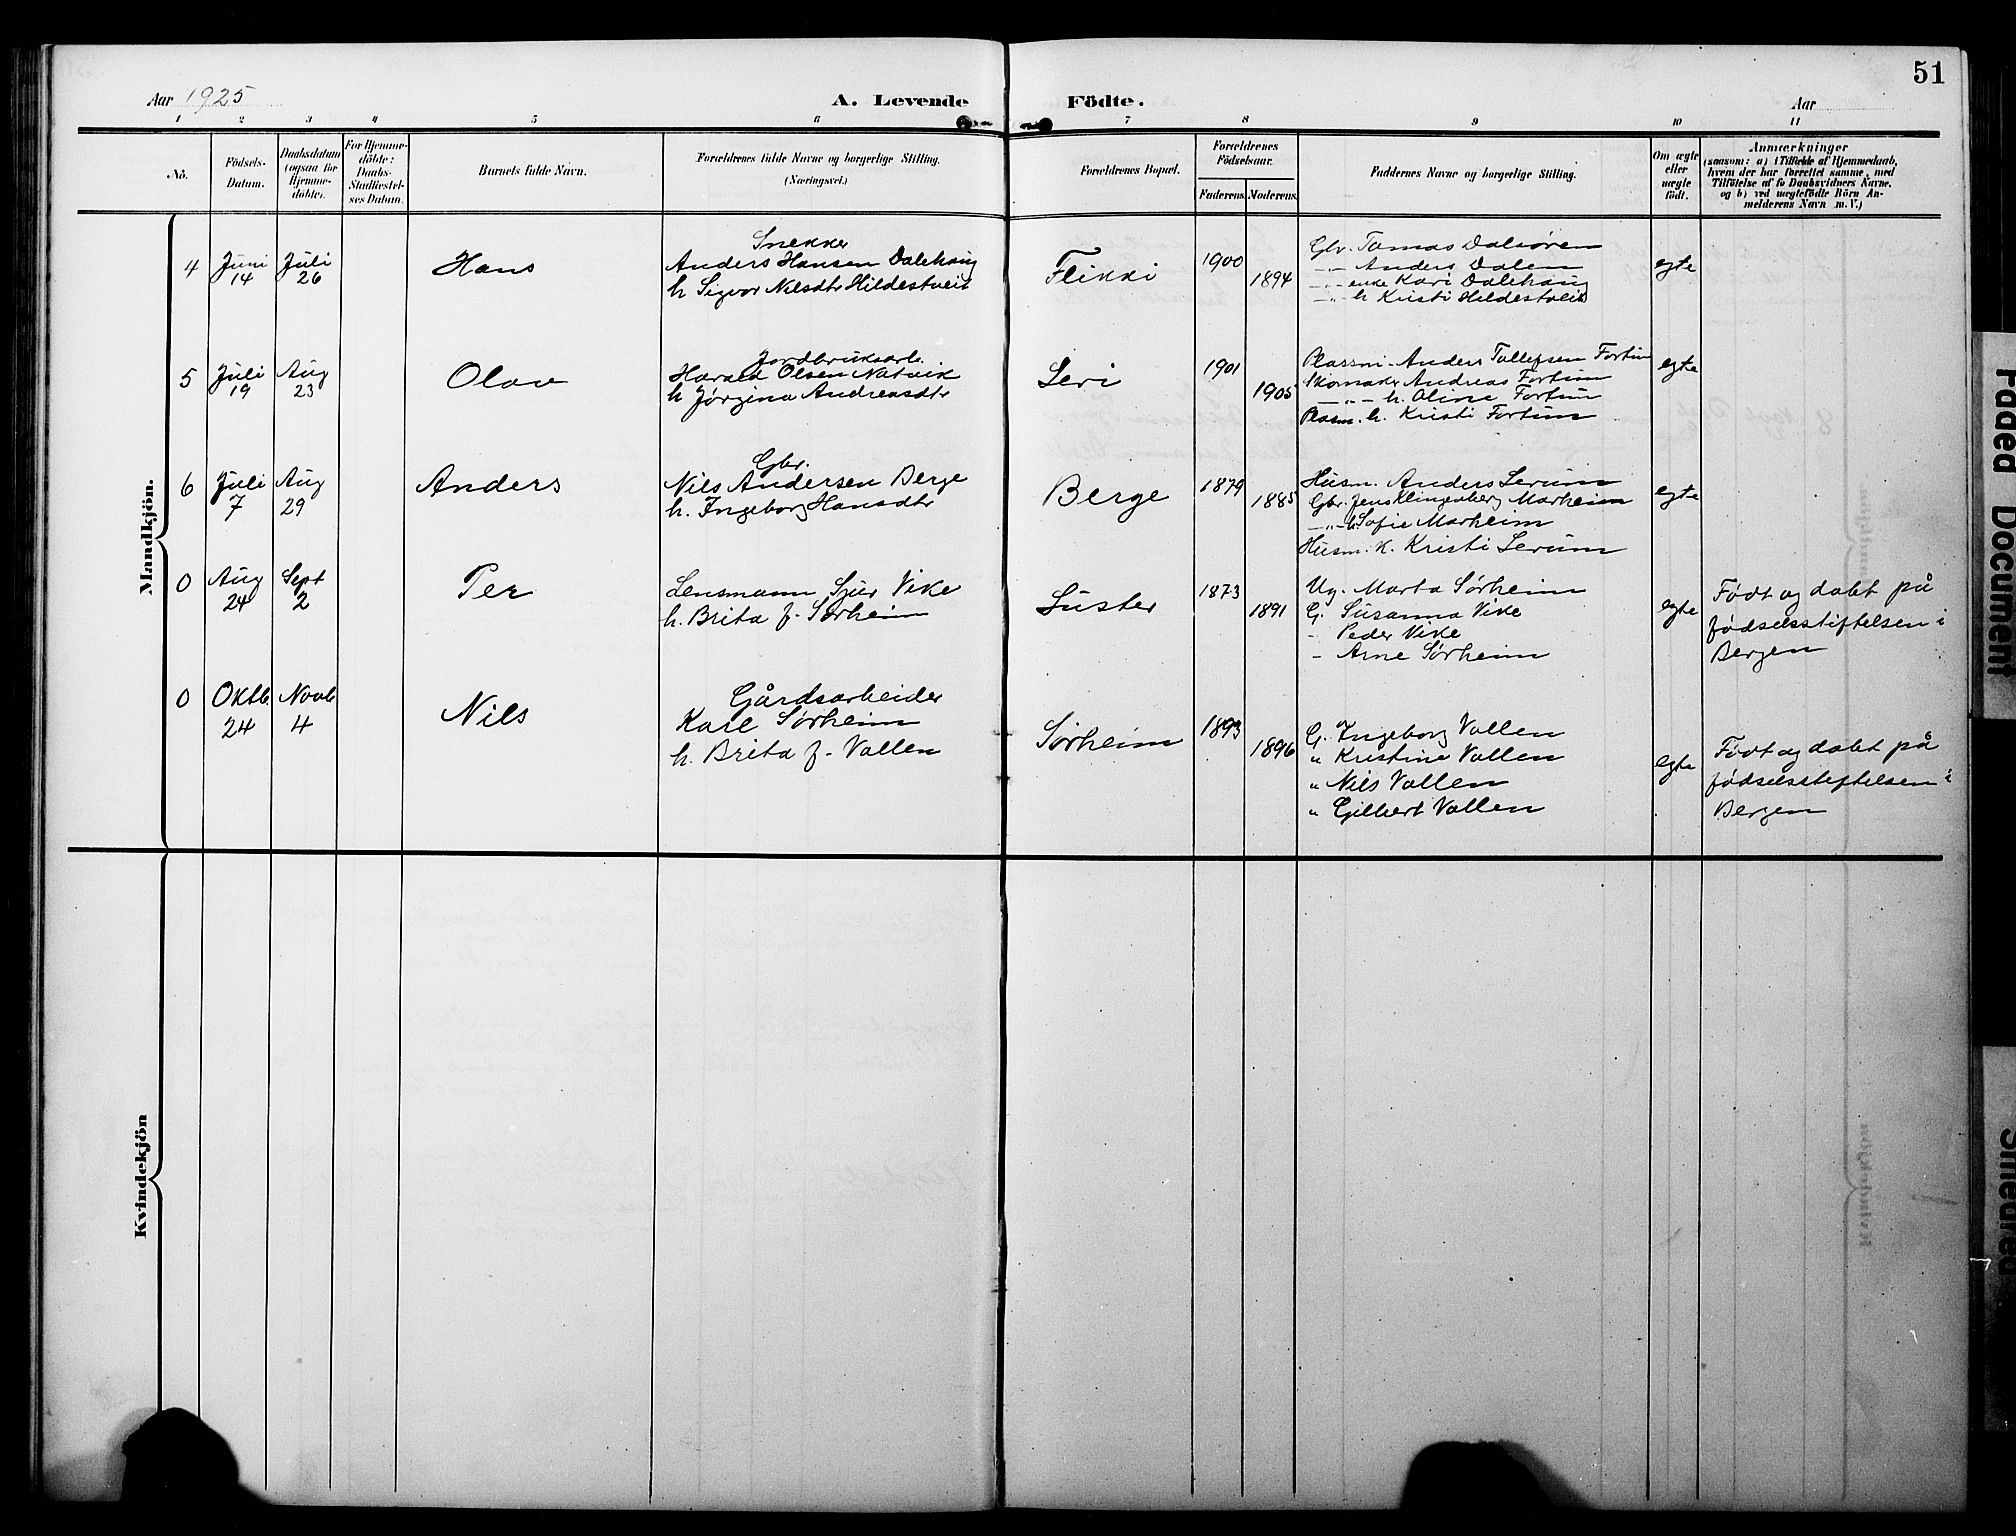 51
Aar 1925
A. Levende Födte.
Aar
1 2 3 4 5 6 7 8 9 10 11
No.
Födsels-Datum.
Daabsdatum (ogsaa for Hjemmedöbte).
For Hjemmedöbte: Daabs-Stadfæstelses Datum.
Barnets fulde Navn.
Forældrenes fulde Navne og borgerlige Stilling. (Næringsvei.)
Forældrenes Bopæl.
Forældrenes Födselsaar.
Faderens. Moderens.
Faddernes Navne og borgerlige Stilling.
Om ægte eller uægte födt.
Anmærkninger
(saasom: a) i Tilfælde af Hjemmedaab, hvem der har forrettet samme, med Tilföielse af to Daabsvidners Navne, og b) ved uægtefödte Börn Anmelderens Navn m. V.)
Mandkjön.
4 Juni 14 Juli 26 Hans
Snekker
Anders Hansen Dalehaug
h. Sigvor Nilsdtr Hildestveit
Flikki 1900 1894
Gbr. Tomas Dalsøren
-"- Anders Dalen
-"- enke Kari Dalehaug
-"- h. Kristi Hildestveit
egte
5 Juli 19 Aug 23 Olav
Jordbruksarb.
Harald Olsen Natvik
h Jørgina Andreasdtr
Leri 1901 1905
Plassm. Anders Tollefsen Fortun
Skomaker Andreas Fortun
-"- h. Oline Fortun
Plasm. h. Kristi Fortun
egte
6 Juli 7 Aug 29 Anders
Gbr.
Nils Andersen Berge
h. Ingeborg Hansdtr
Berge 1879 1885
Husm. Anders Lerum
Gbr. Jens Klingenberg Marheim
-"- h. Sofie Marheim
Husm. h. Kristi Lerum
egte
0 Aug 24 Sept 2 Per
Lensmann Sjur Vike
h. Brita f. Sørheim
Luster 1873 1891
Ug. Marta Sørheim
G. Susanna Vike
- Peder Vike
- Arne Sørheim
egte
Født og døbt på
fødselsstiftelsen i
Bergen
0 Oktb. 24 Novb 4 Nils
Gårdsarbeider
Karl Sørheim
h. Brita f. Vallen
Sørheim 1893 1896
G. Ingeborg Vallen
" Kristine Vallen
" Nils Vallen
" Gilbert Vallen
egte
Født og døbt på
fødselsstiftelsen i
Bergen
Kvindekjön
Faded Document
Smeared